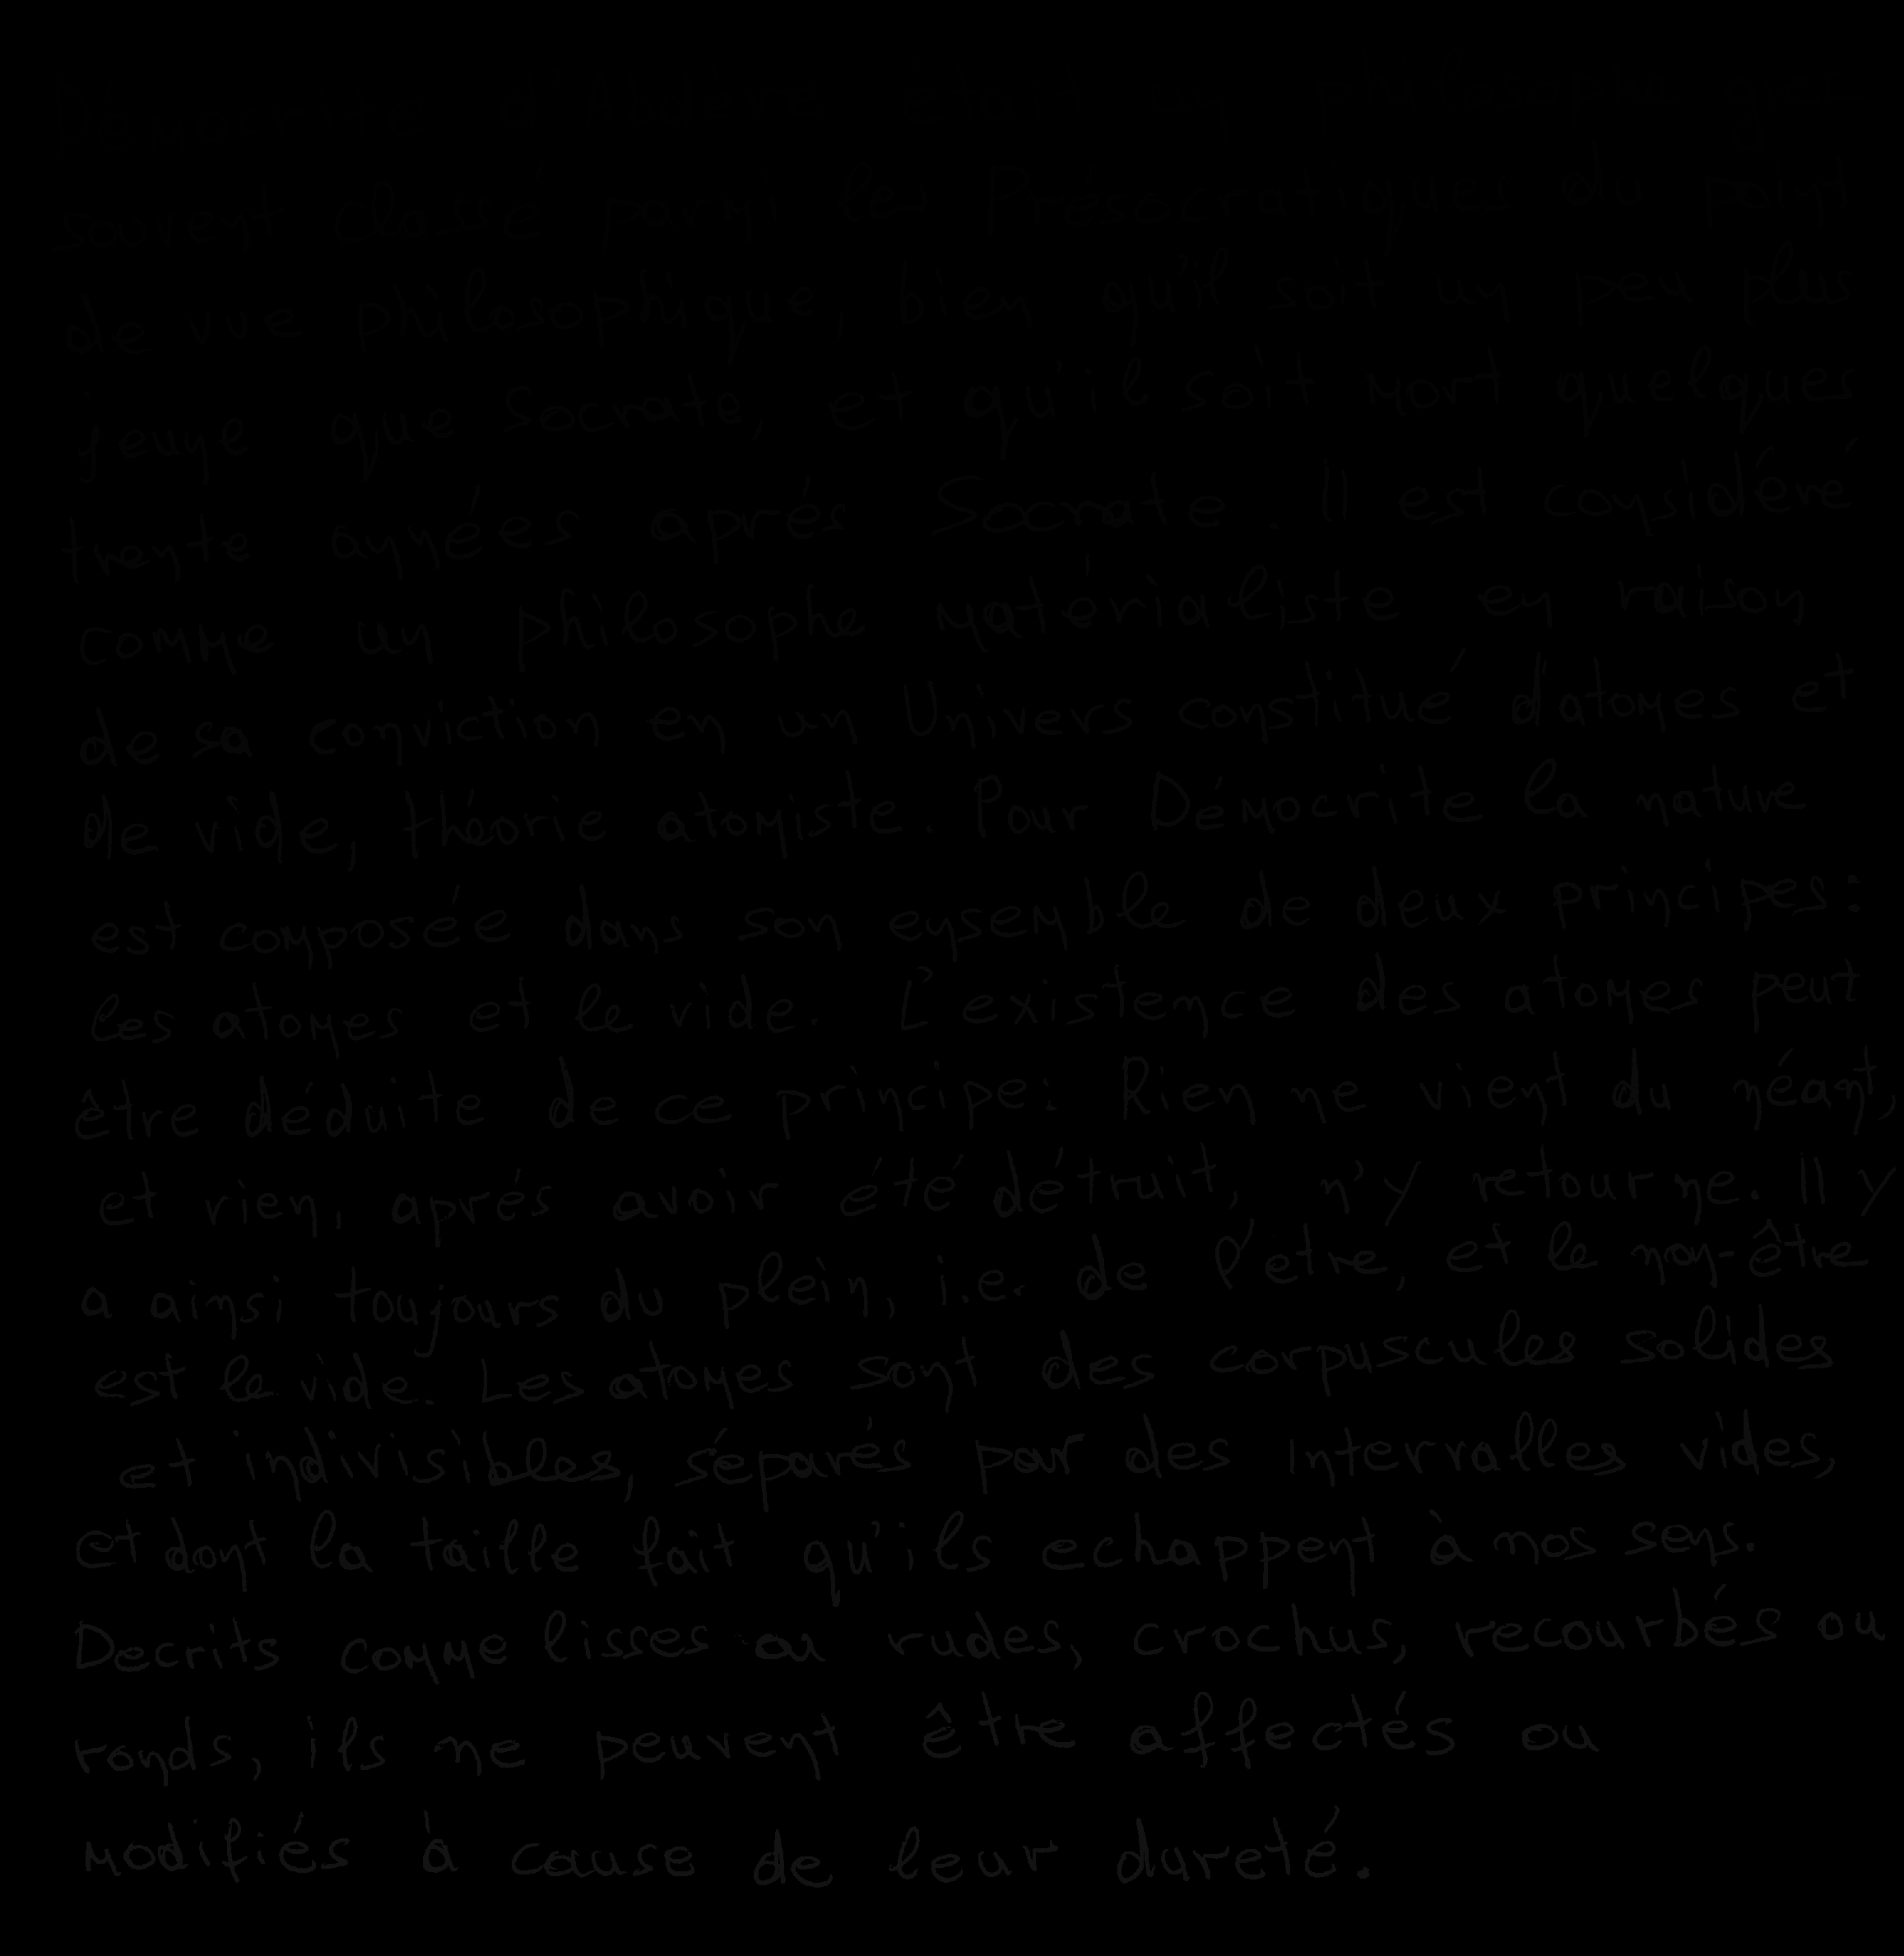 souvent classé parmi les Présocratiques du point
de vue philosophique, bien qu'il soit un peu plus
jeune que Socrate, et qu'il soit mort quelques
trente années aprés Socrate. Il est considéré
comme un philosophe matérialiste en raison
de sa conviction en un Univers constitué d'atomes et
de vide, théorie atomiste. Pour Démocrite la nature
est composée dans son ensemble de deux principes:
les atomes et le vide. L'existence des atomes peut
être déduite de ce principe: Rien ne vient du néant,
et rien, aprés avoir été détruit, n'y retourne. Il y
a ainsi toujours du plein, i.e. de l'etre, et le non-être
est le vide. Les atomes sont des corpuscules solides
et indivisibles, séparés par des intervalles vides,
et dont la taille fait qu'ils echappent à nos sens.
Decrits comme lisses ou rudes, crochus, recourbés ou
ronds, ils ne peuvent être affectés ou
modifiés à cause de leur dureté.